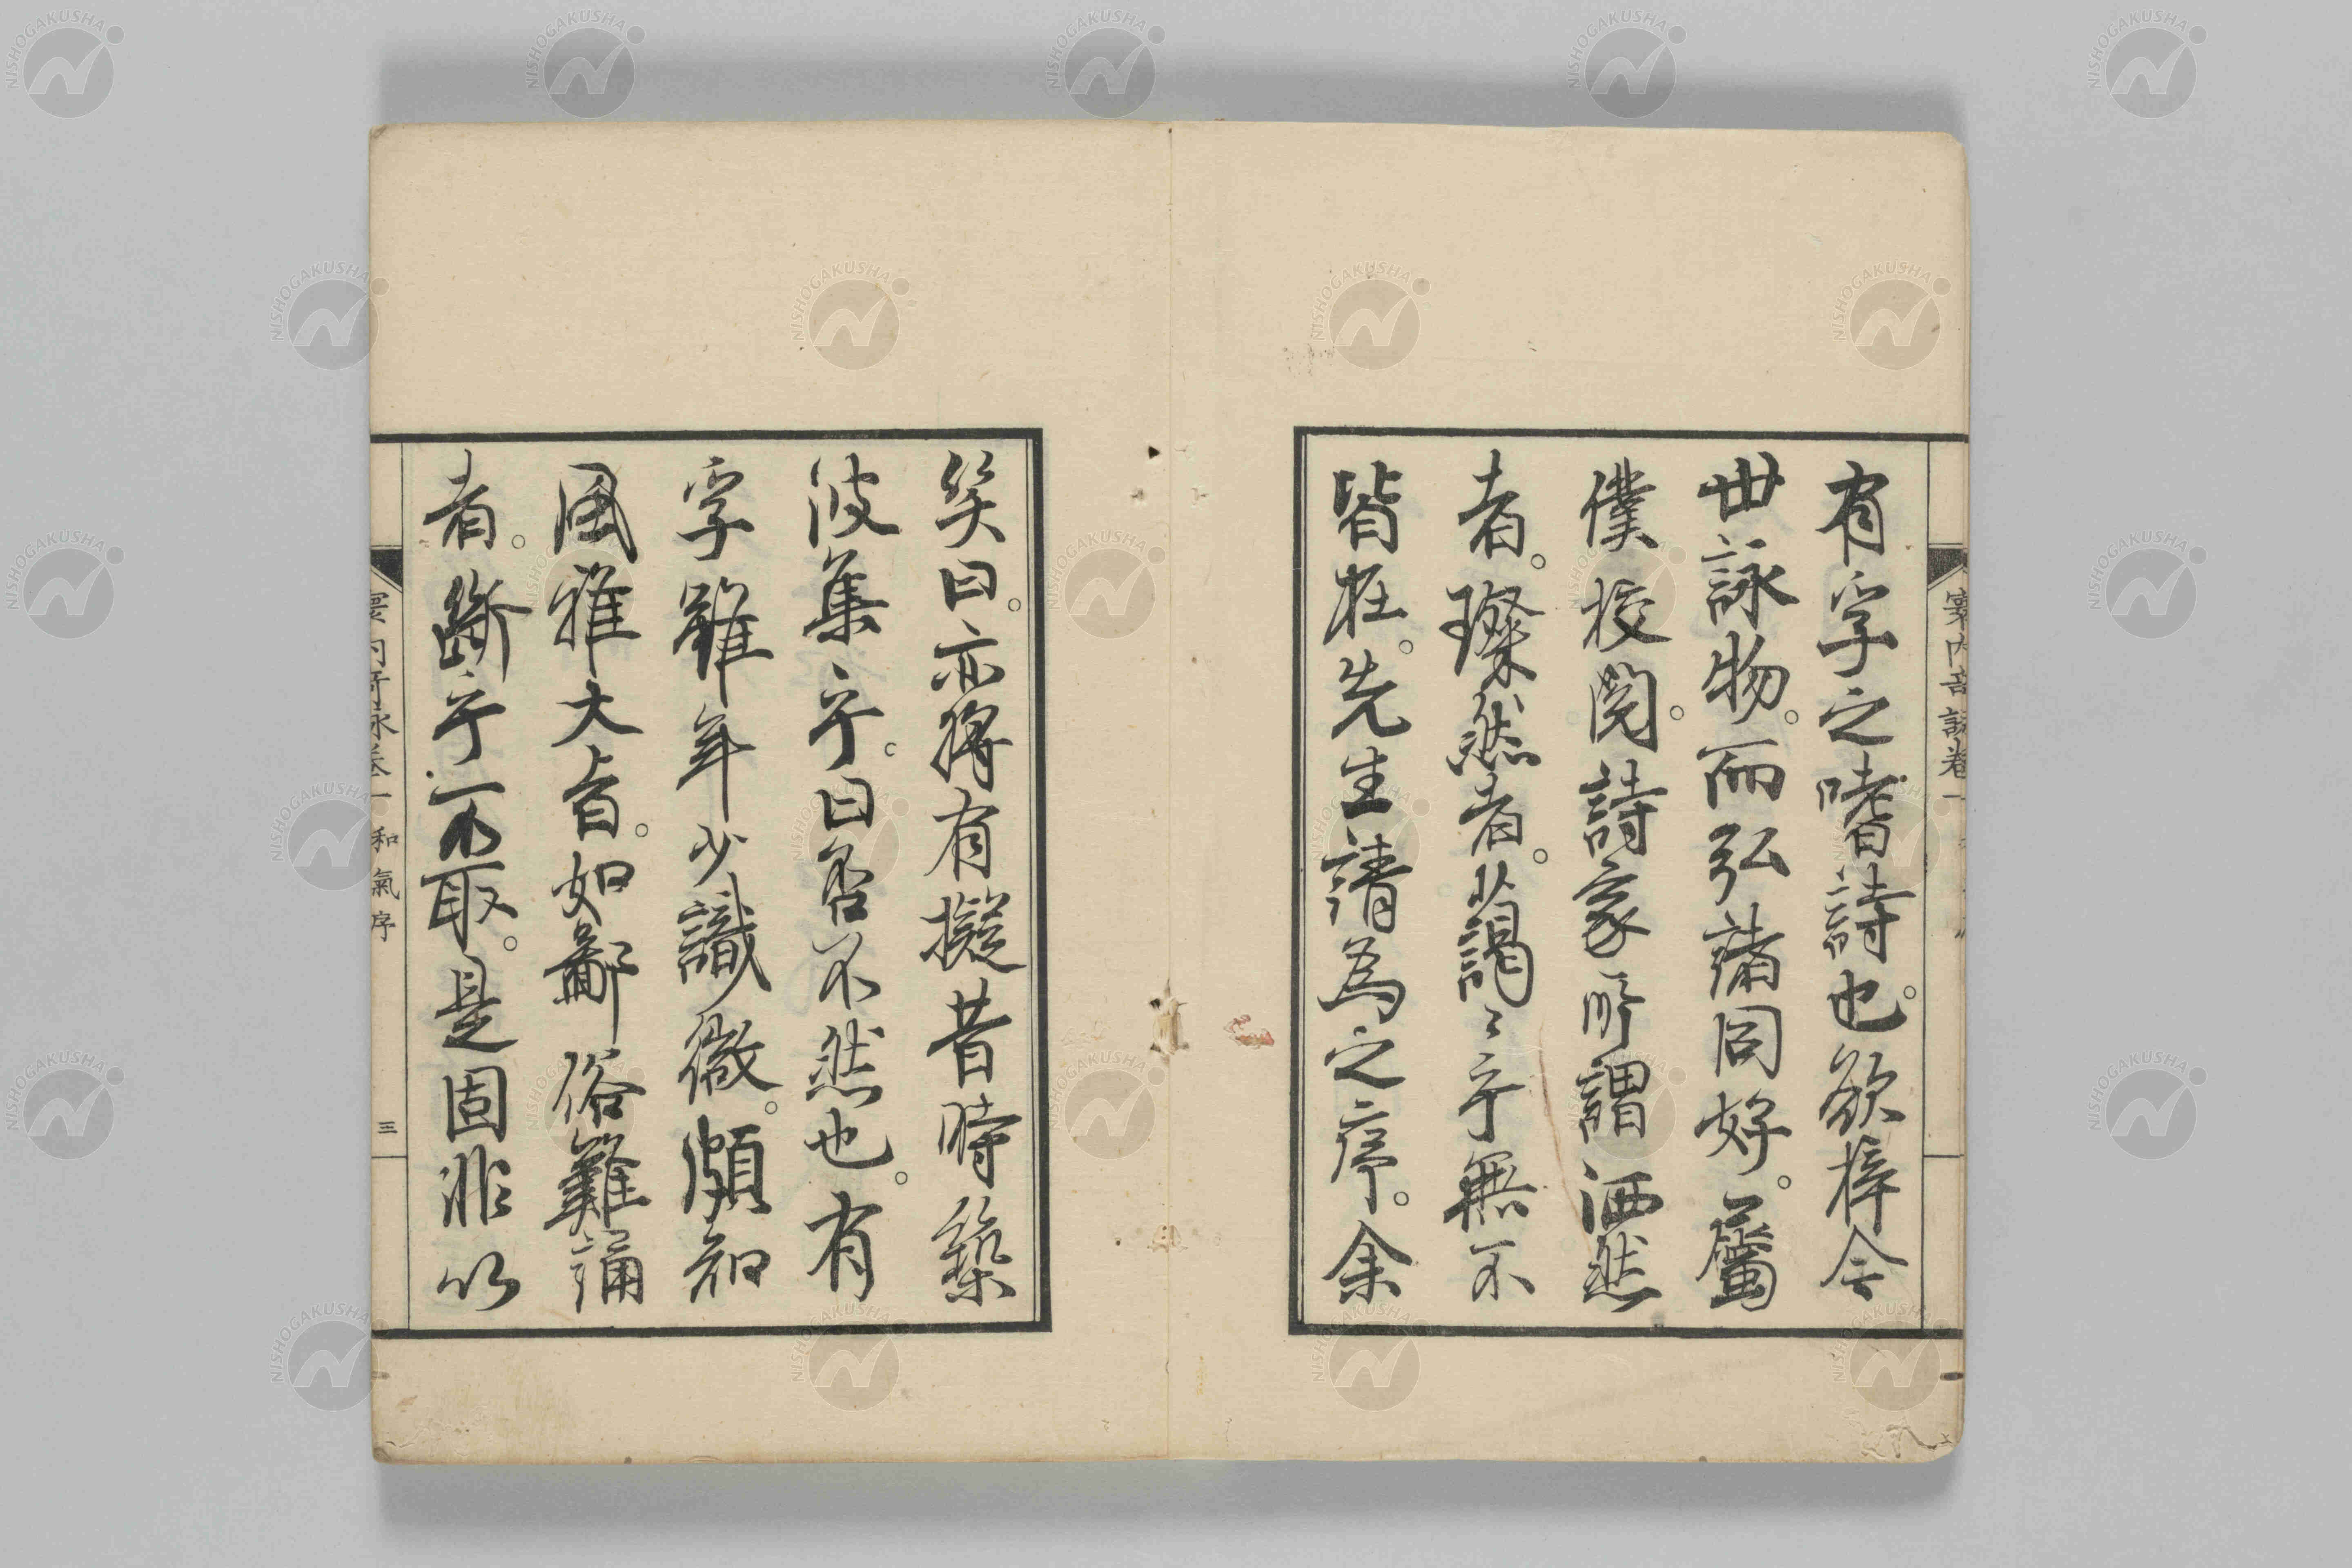 有孚之嗜詩也。欲梓今
世詠物。而弘諸同好。屬
僕校閱。詩家所謂洒然
者。璨然者。藹〻乎無不
皆在。先生請為之序。余
笑曰。亦將有擬昔時築
波集乎。曰否不然也。有
孚雖年少識微。頗知
風雅大旨。如鄙俗難誦
者。斷乎不取。是固非以
和氣序
三
NISHOGAKUSHA